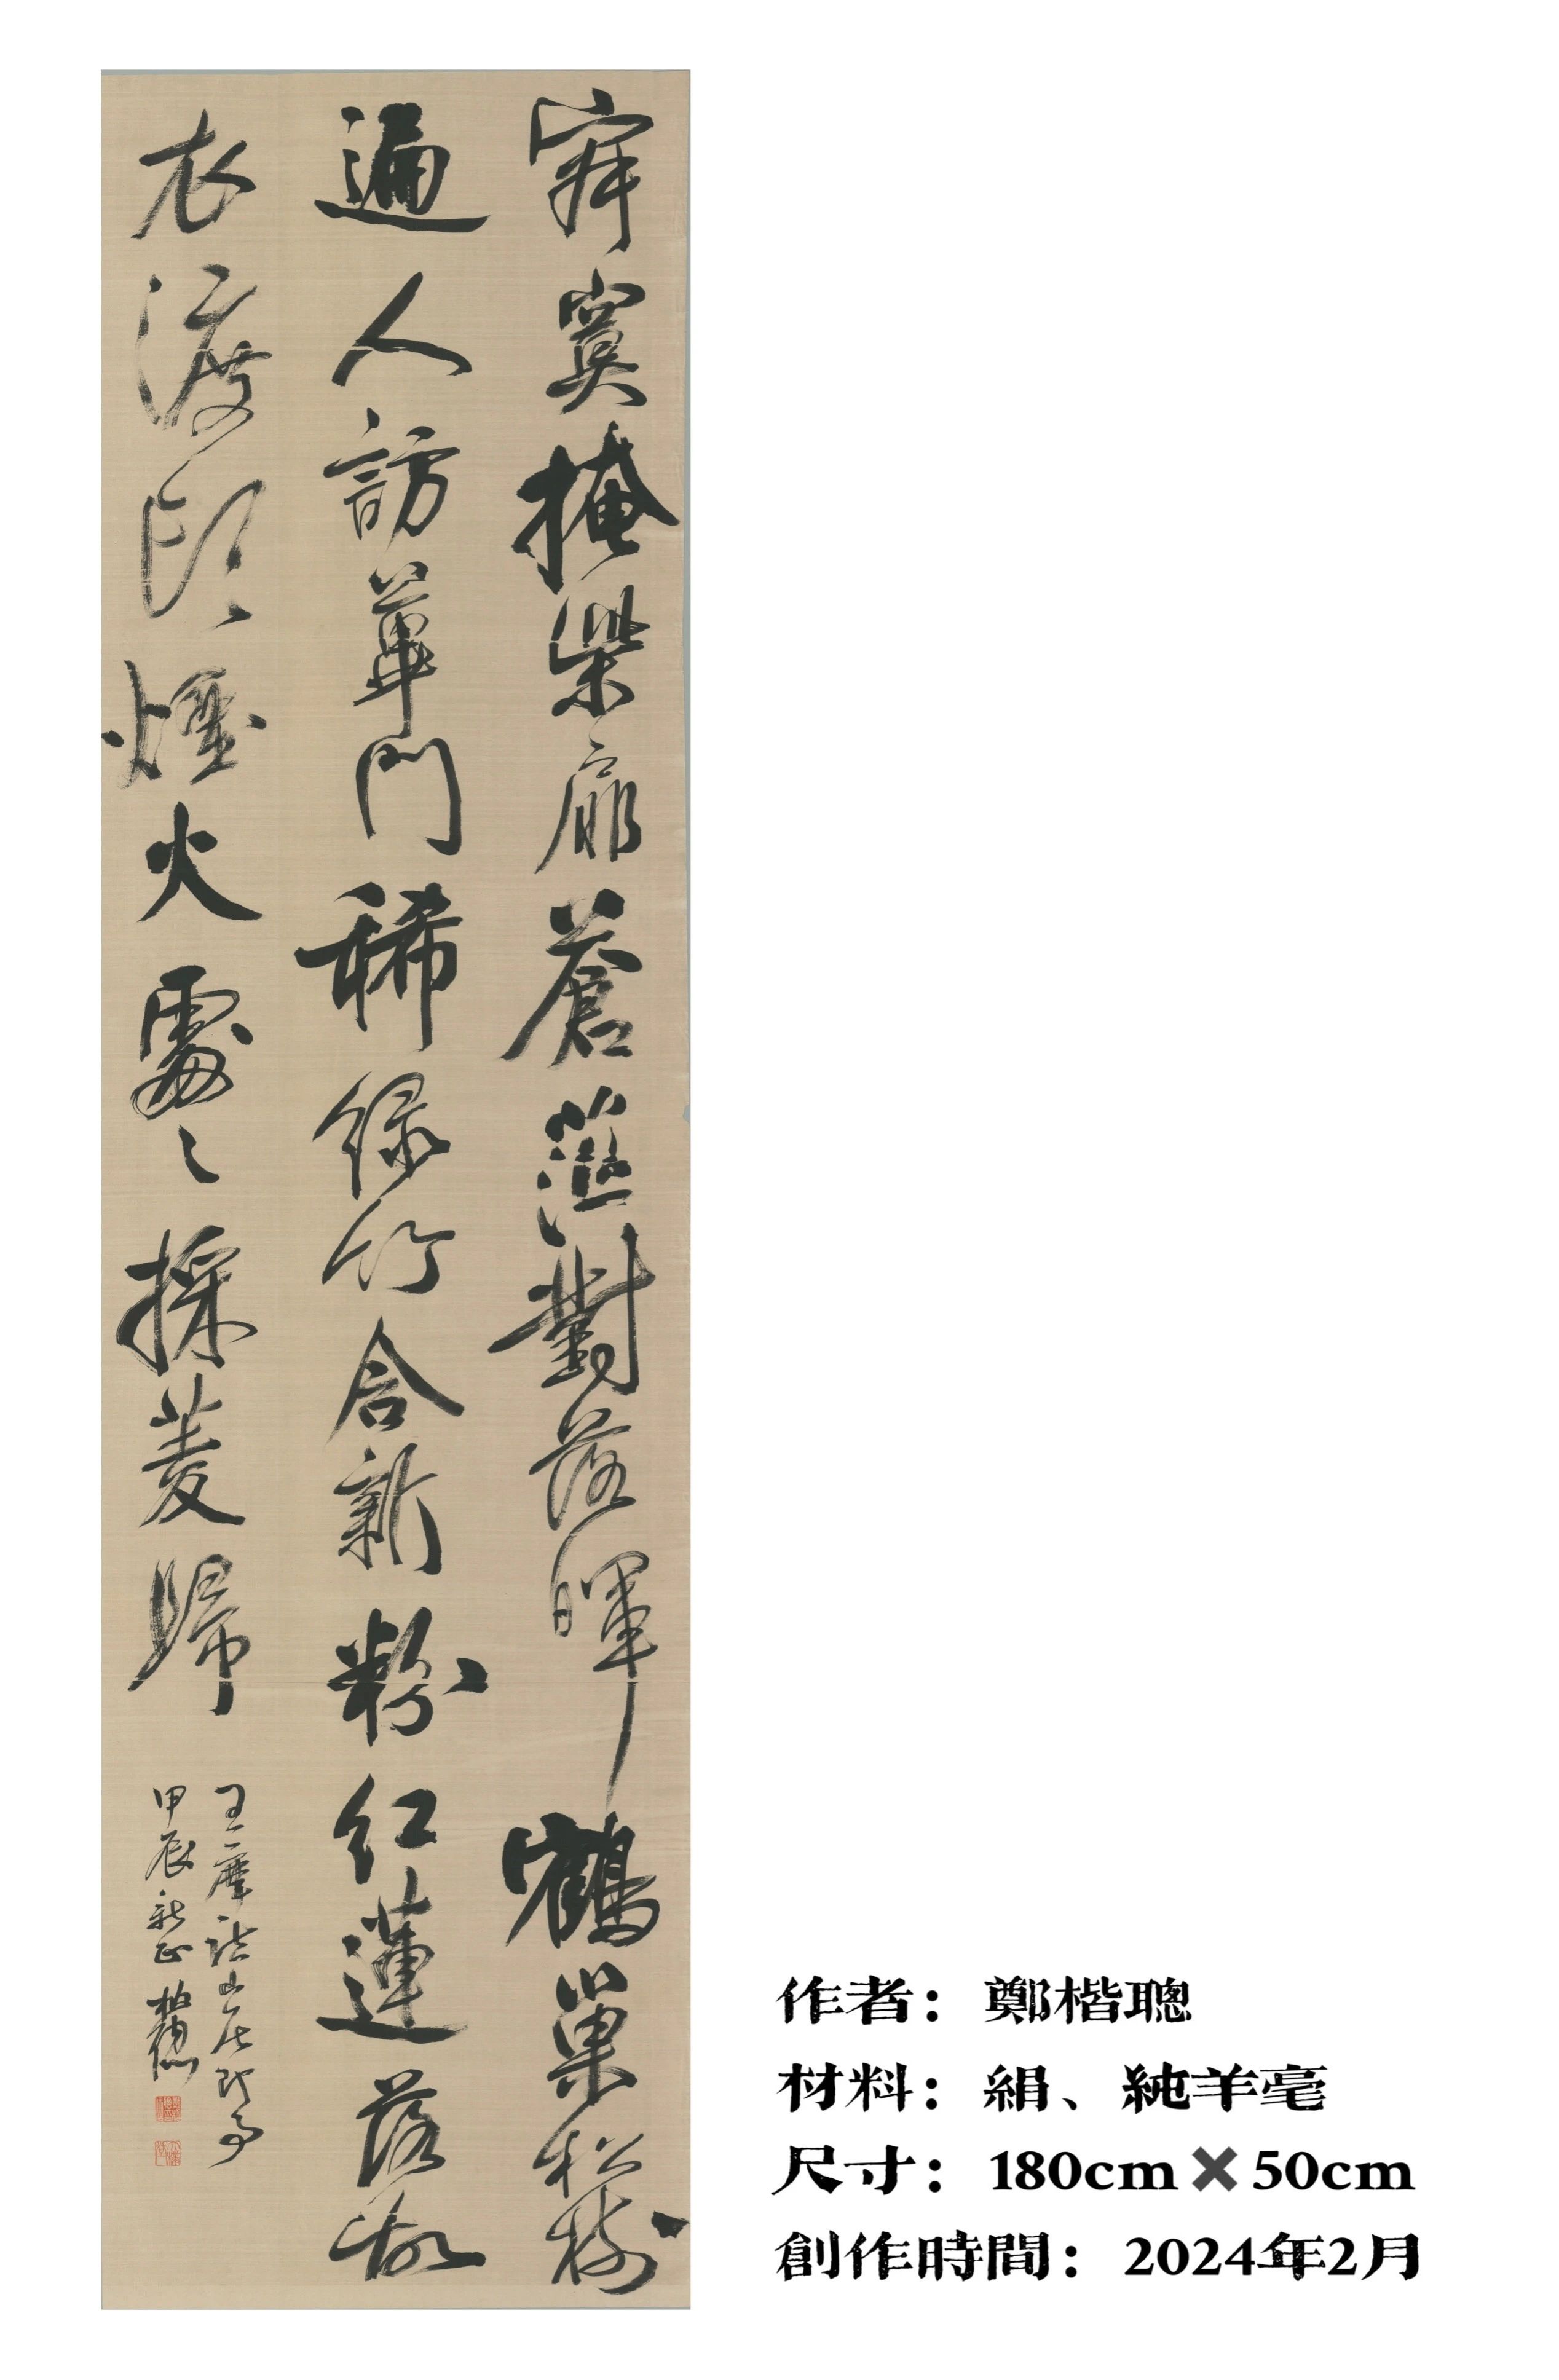 寂寞掩柴扉蒼茫對落暉鶴巢松樹
遍人訪蓽門稀綠竹含新粉紅蓮落故
衣渡頭煙火處々採菱歸
王摩詰山居即事
甲辰新正楷聰
作者：鄭楷聰
材料：絹、純羊毫
尺寸：180cm✖50cm
創作時間：2024年2月